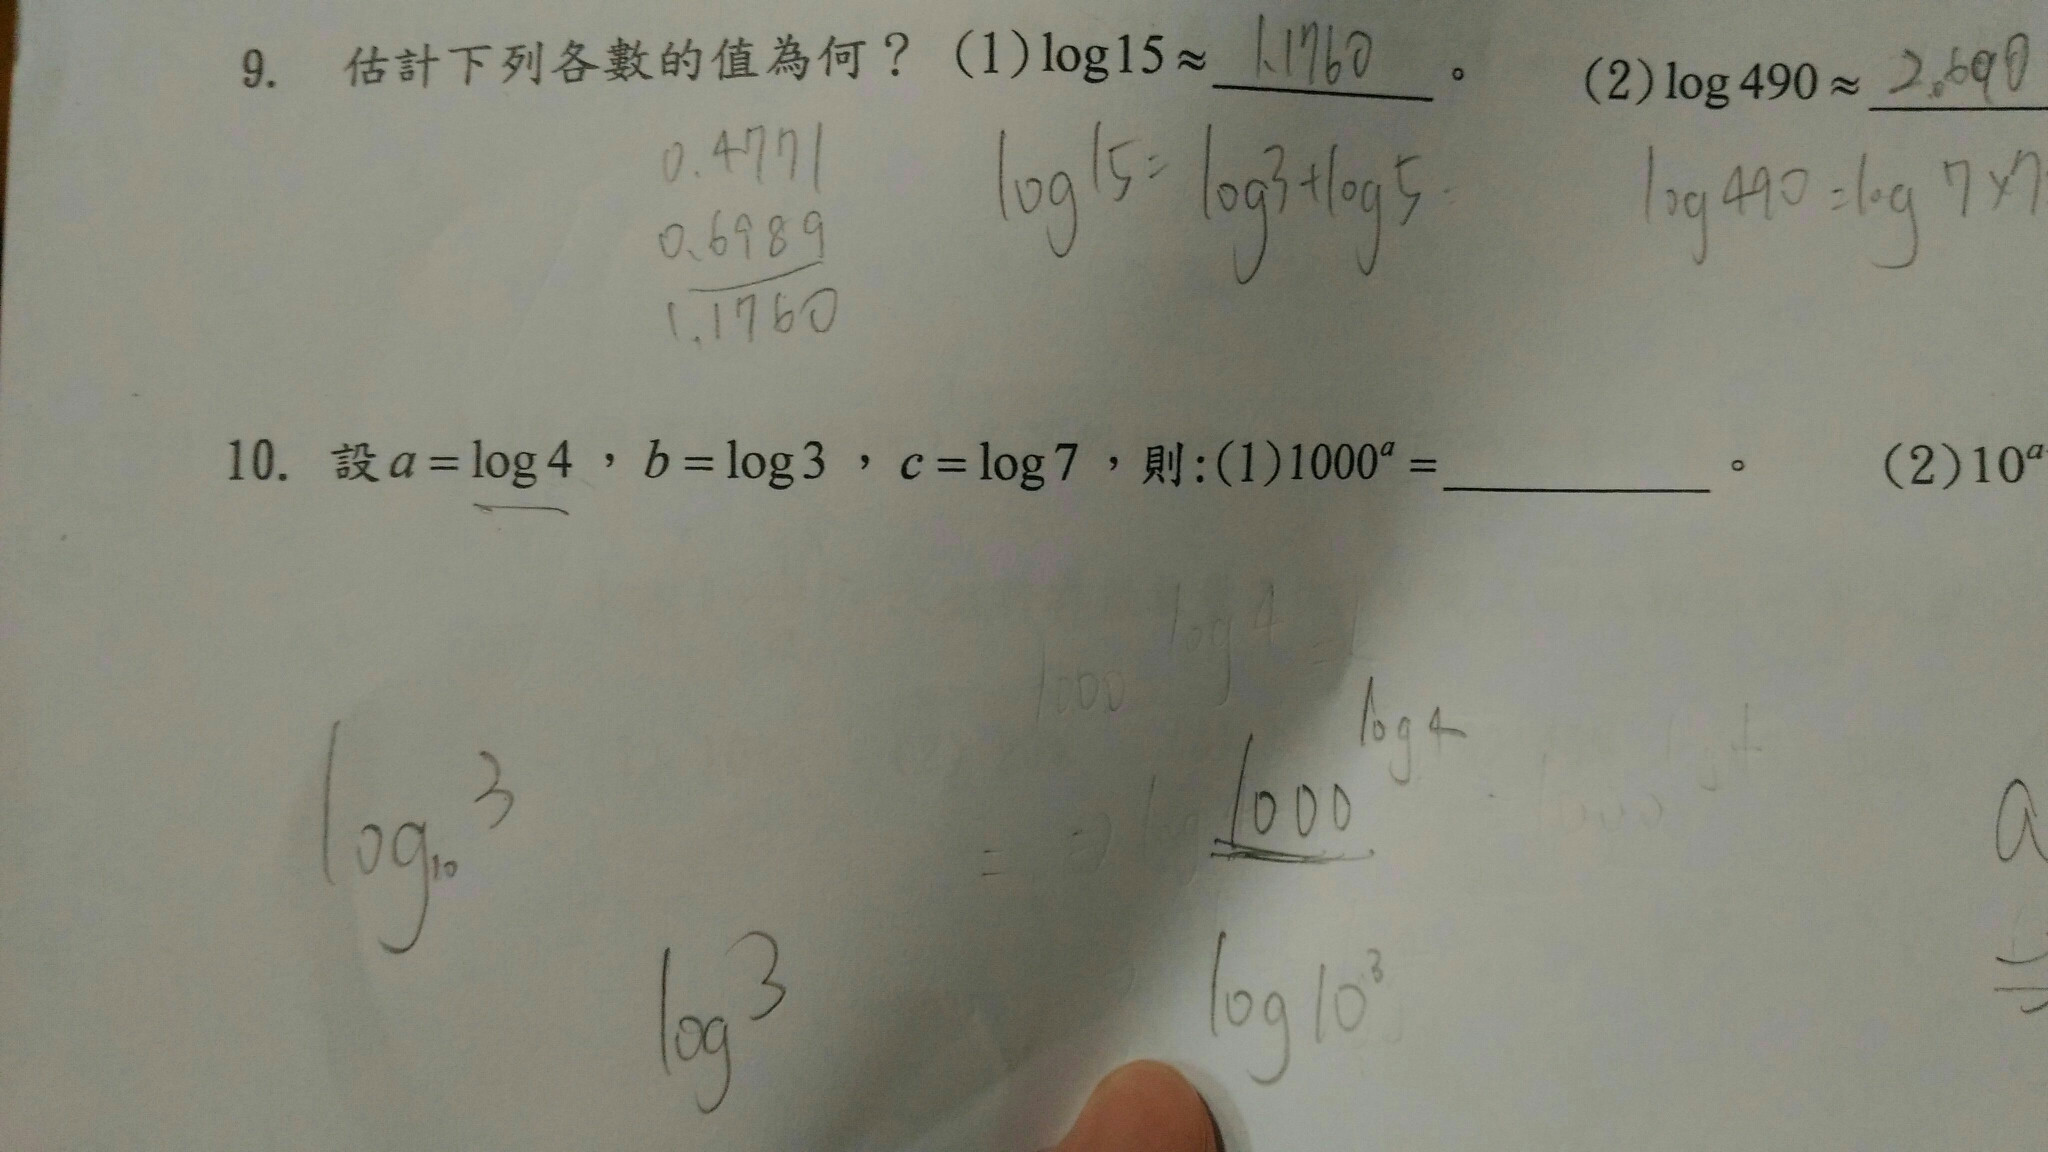 9. 估計下列各數的值為何？ (1) log 15 ≈ 1.1760 。 (2) log 490 ≈ 2.690
0.4771
0.6989
1.1760
log 15 = log 3 + log 5
log 490 = log 7 × 7
10. 設 a = log 4 , b = log 3 , c = log 7 , 則 : (1) 1000^a = ________ 。 (2) 10^a
1000^log 4 =
1000^log 4
log₁₀ 3
a
log 3
log 10³